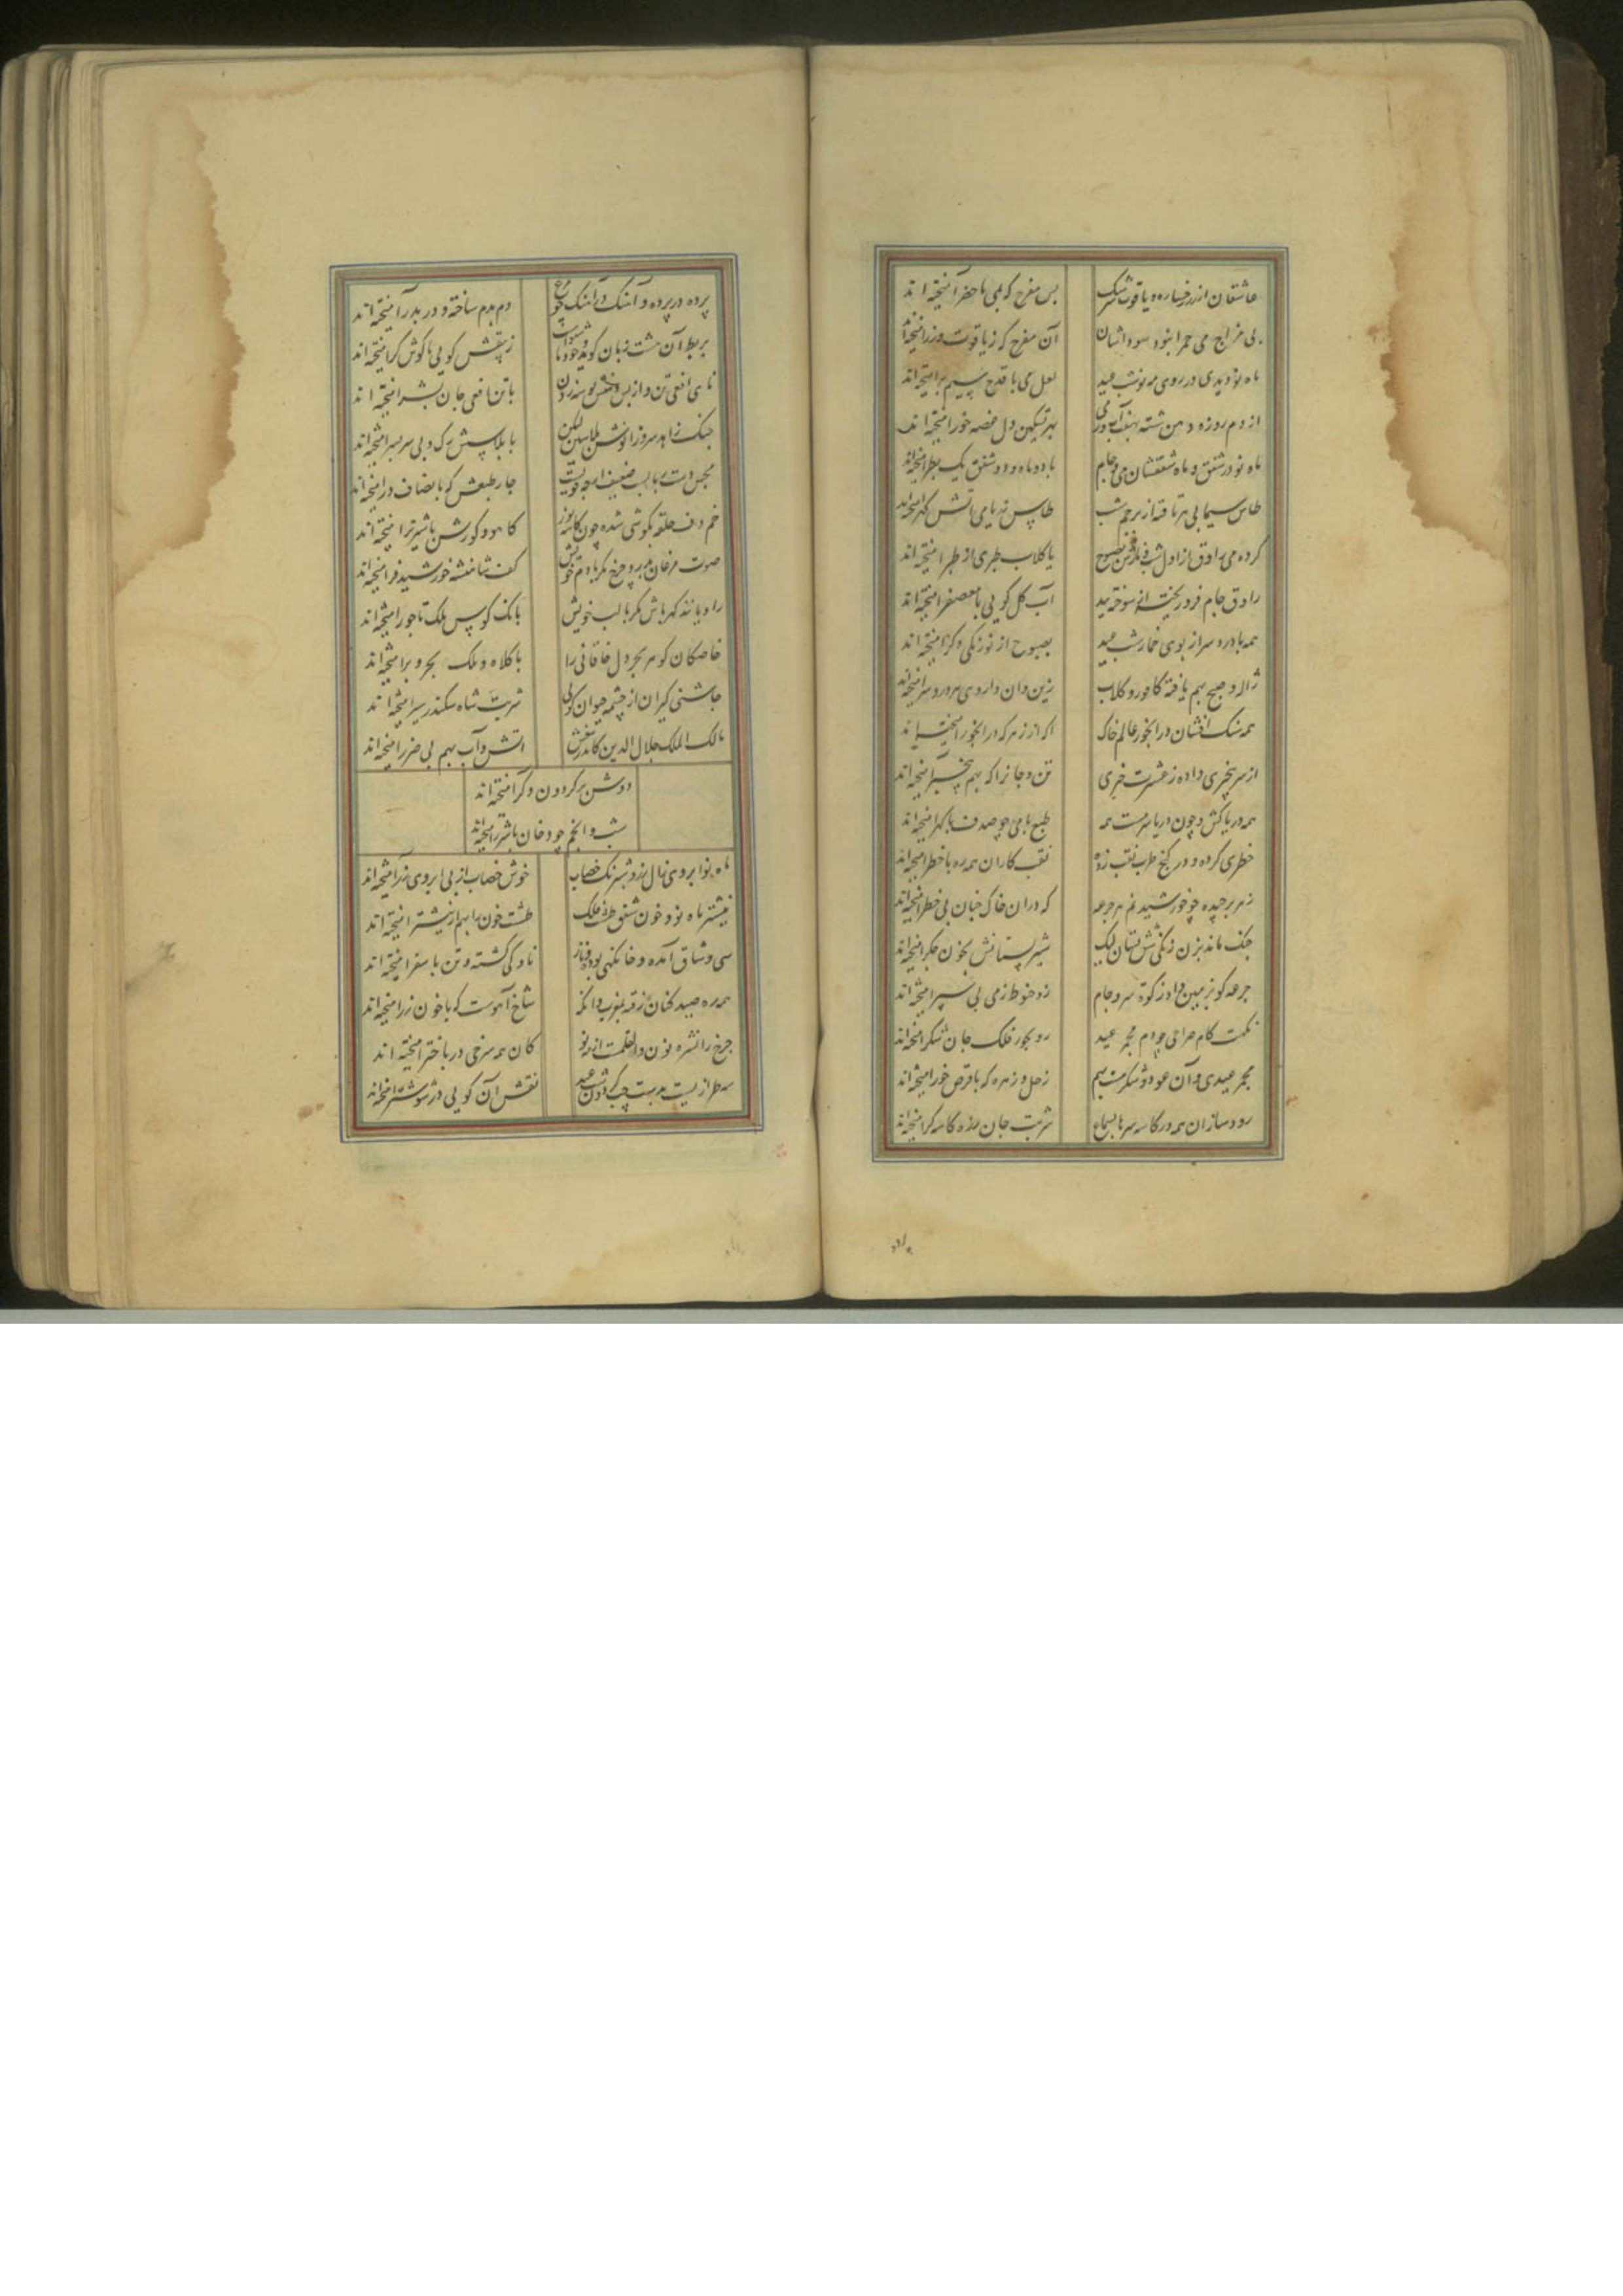 عاشقان از زر رخساره و یاقوت سرشک
بس مفرح که بی ماحضر آمیخته اند
بی مزاج می حمرا نبود سوداشان
آن مفرح که ز یاقوت و زر آمیخته اند
ماه نو دیدی در روی مه نو شب عید
لعل می با قدح سیم بر آمیخته اند
از دم روزه دهن شسته بهفت آب و ز می
بهر تسکین دل غصه خور آمیخته اند
ماه نو در شفق و ماه شفقشان می و جام
با دو ماه و دو شفق یک بطر آمیخته اند
طاس سیمابی مه تافته از پرچم شب
طاس زر با می آتش گهر آمیخته اند
کرده می راوق از اول شب بصبوح
با کلاب طبری از طبر آمیخته اند
راوق جام فرو ریخته از سوخته بید
آب گل کویی با معصفر آمیخته اند
همه با درد سر از بوی خمار شب عید
بصبوح از نو رنکی دکر آمیخته اند
ژاله و صبح بهم یافته کافور و کلاب
زین و آن داروی هر درد سر آمیخته اند
همه سنک افشان در آبخور عالم خاک
اکر از زهر که در آبخور آمیخته اند
از سر بیخبری داده ز عشرت خبری
تن و جانرا که بهم بیخبر آمیخته اند
همه دریاکش و چون دریا سرمست همه
طبع با می چو صدف با کهر آمیخته اند
خطری کرده و در کنج طرب نقب زده
نقب کاران همه ره با خطر آمیخته اند
زهر برچیده چو خورشید نم هر جرعه
که در آن خاک چنان بی خطر آمیخته اند
چنک ماند بزن زنکی شش پستان لیک
شیر پستانش بخون جکر آمیخته اند
جرعه کو بزمین داد زکوة سر و جام
زو حنوط زمی بی سپر آمیخته اند
نکهت کام صراحی چو دم مجمر عید
رو بخور فلک جان شکر آمیخته اند
مجمر عیدی و آن عود و شکر هست بهم
زحل و زهره که با قرص خور آمیخته اند
رودسازان همه در کاسه سرها بسماع
شربت جان ز ره کاسه کر آمیخته اند
پرده در پرده و آهنک در آهنک چو مرغ
دم بدم ساخته و در بدر آمیخته اند
بربط آن هشت زبان کوید و خود ناشنواست
زیبقش کویی با کوش کر آمیخته اند
نای افعی تن و از بس دهنش بوسه زدن
با تن افعی جان بشر آمیخته اند
چنک زاهد سر و زانوش پلاسین لیکن
با پلاسش رک و پی سر بسر آمیخته اند
چار طبعش که بانصاف در آمیخته اند
خم دف حلقه بکوشی شده چون کاسه یوز
کاهو و کورش با شیر نر آمیخته اند
صوت مرغان بدرد چرخ مکر با دم خویش
کف شاهنشه خورشید فر آمیخته اند
راویانند کهر پاش مکر با لب خویش
بانک کوس ملک تاجور آمیخته اند
خاصکان کوهر بحر دل خاقانی را
با کلاه و ملک بحر و بر آمیخته اند
چاشنی کیران از چشمه حیوان کویی
شربت شاه سکندر سیر آمیخته اند
مالک الملک جلال الدین کاندر تیغش
آتش و آب بهم بی ضرر آمیخته اند
دوش بر کردون دکر آمیخته اند
شب و انجم چو دخان با شرر آمیخته اند
ماه نو ابروی زال زر و شب رنک خضاب
خوش خضاب از پی ابروی زر آمیخته اند
نیشتر ماه نو و خون شفق طشت فلک
طشت خون را بهم از نیشتر آمیخته اند
سی وشاق آمده و خانکهی بوده و باز
ناوکی کشته و تن با سفر آمیخته اند
همه ره صید کنان رفته بمغرب و آنک
شاخ آهوست که با خون زر آمیخته اند
چرخ را نشره نون والقلمست از مه نو
کان همه سرخی در باختر آمیخته اند
سه طراز است بدست چپ کردون شب عید
نقش آن کویی در شوشتر آمیخته اند
پرده